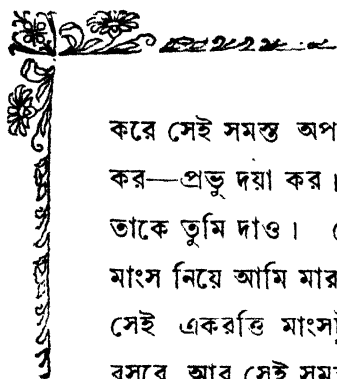 করে সেই সমস্ত অপ
কর—প্রভু দয়া কর।
তাকে তুমি দাও।
মাংস নিয়ে আমি মার
সেই একরত্তি মাংস
বসবে আর সেই সময়